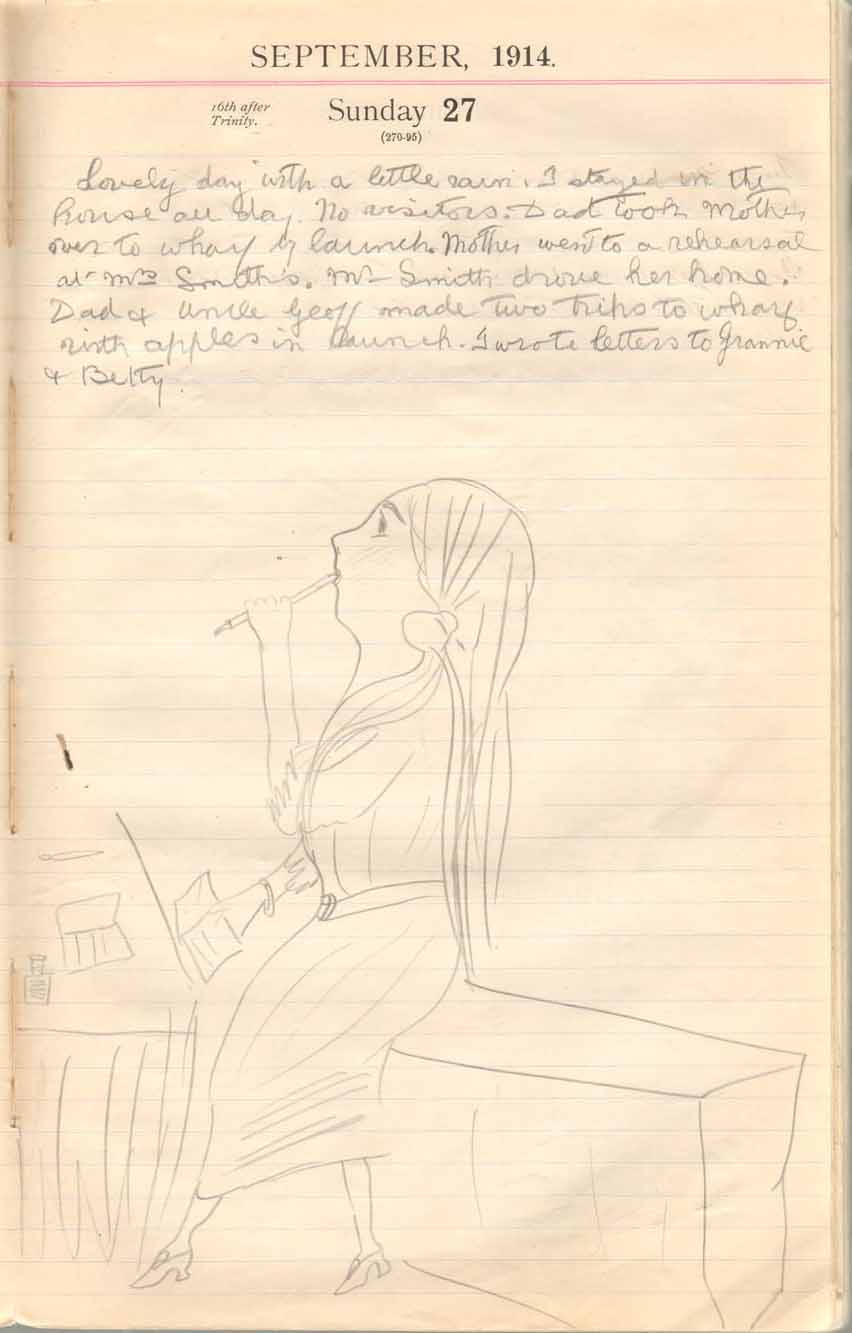 SEPTEMBER, 1914.
16th after
Trinity.
Sunday 27
(270-95)
Lovely day with a little rain. I stayed in the
house all day. No visitors. Dad took Mother
over to wharf by launch. Mother went to a rehearsal
at Mrs Smith's. Mr Smith drove her home.
Dad & Uncle Geoff made two trips to wharf
with apples in launch. I wrote letters to Grannie
& Betty.